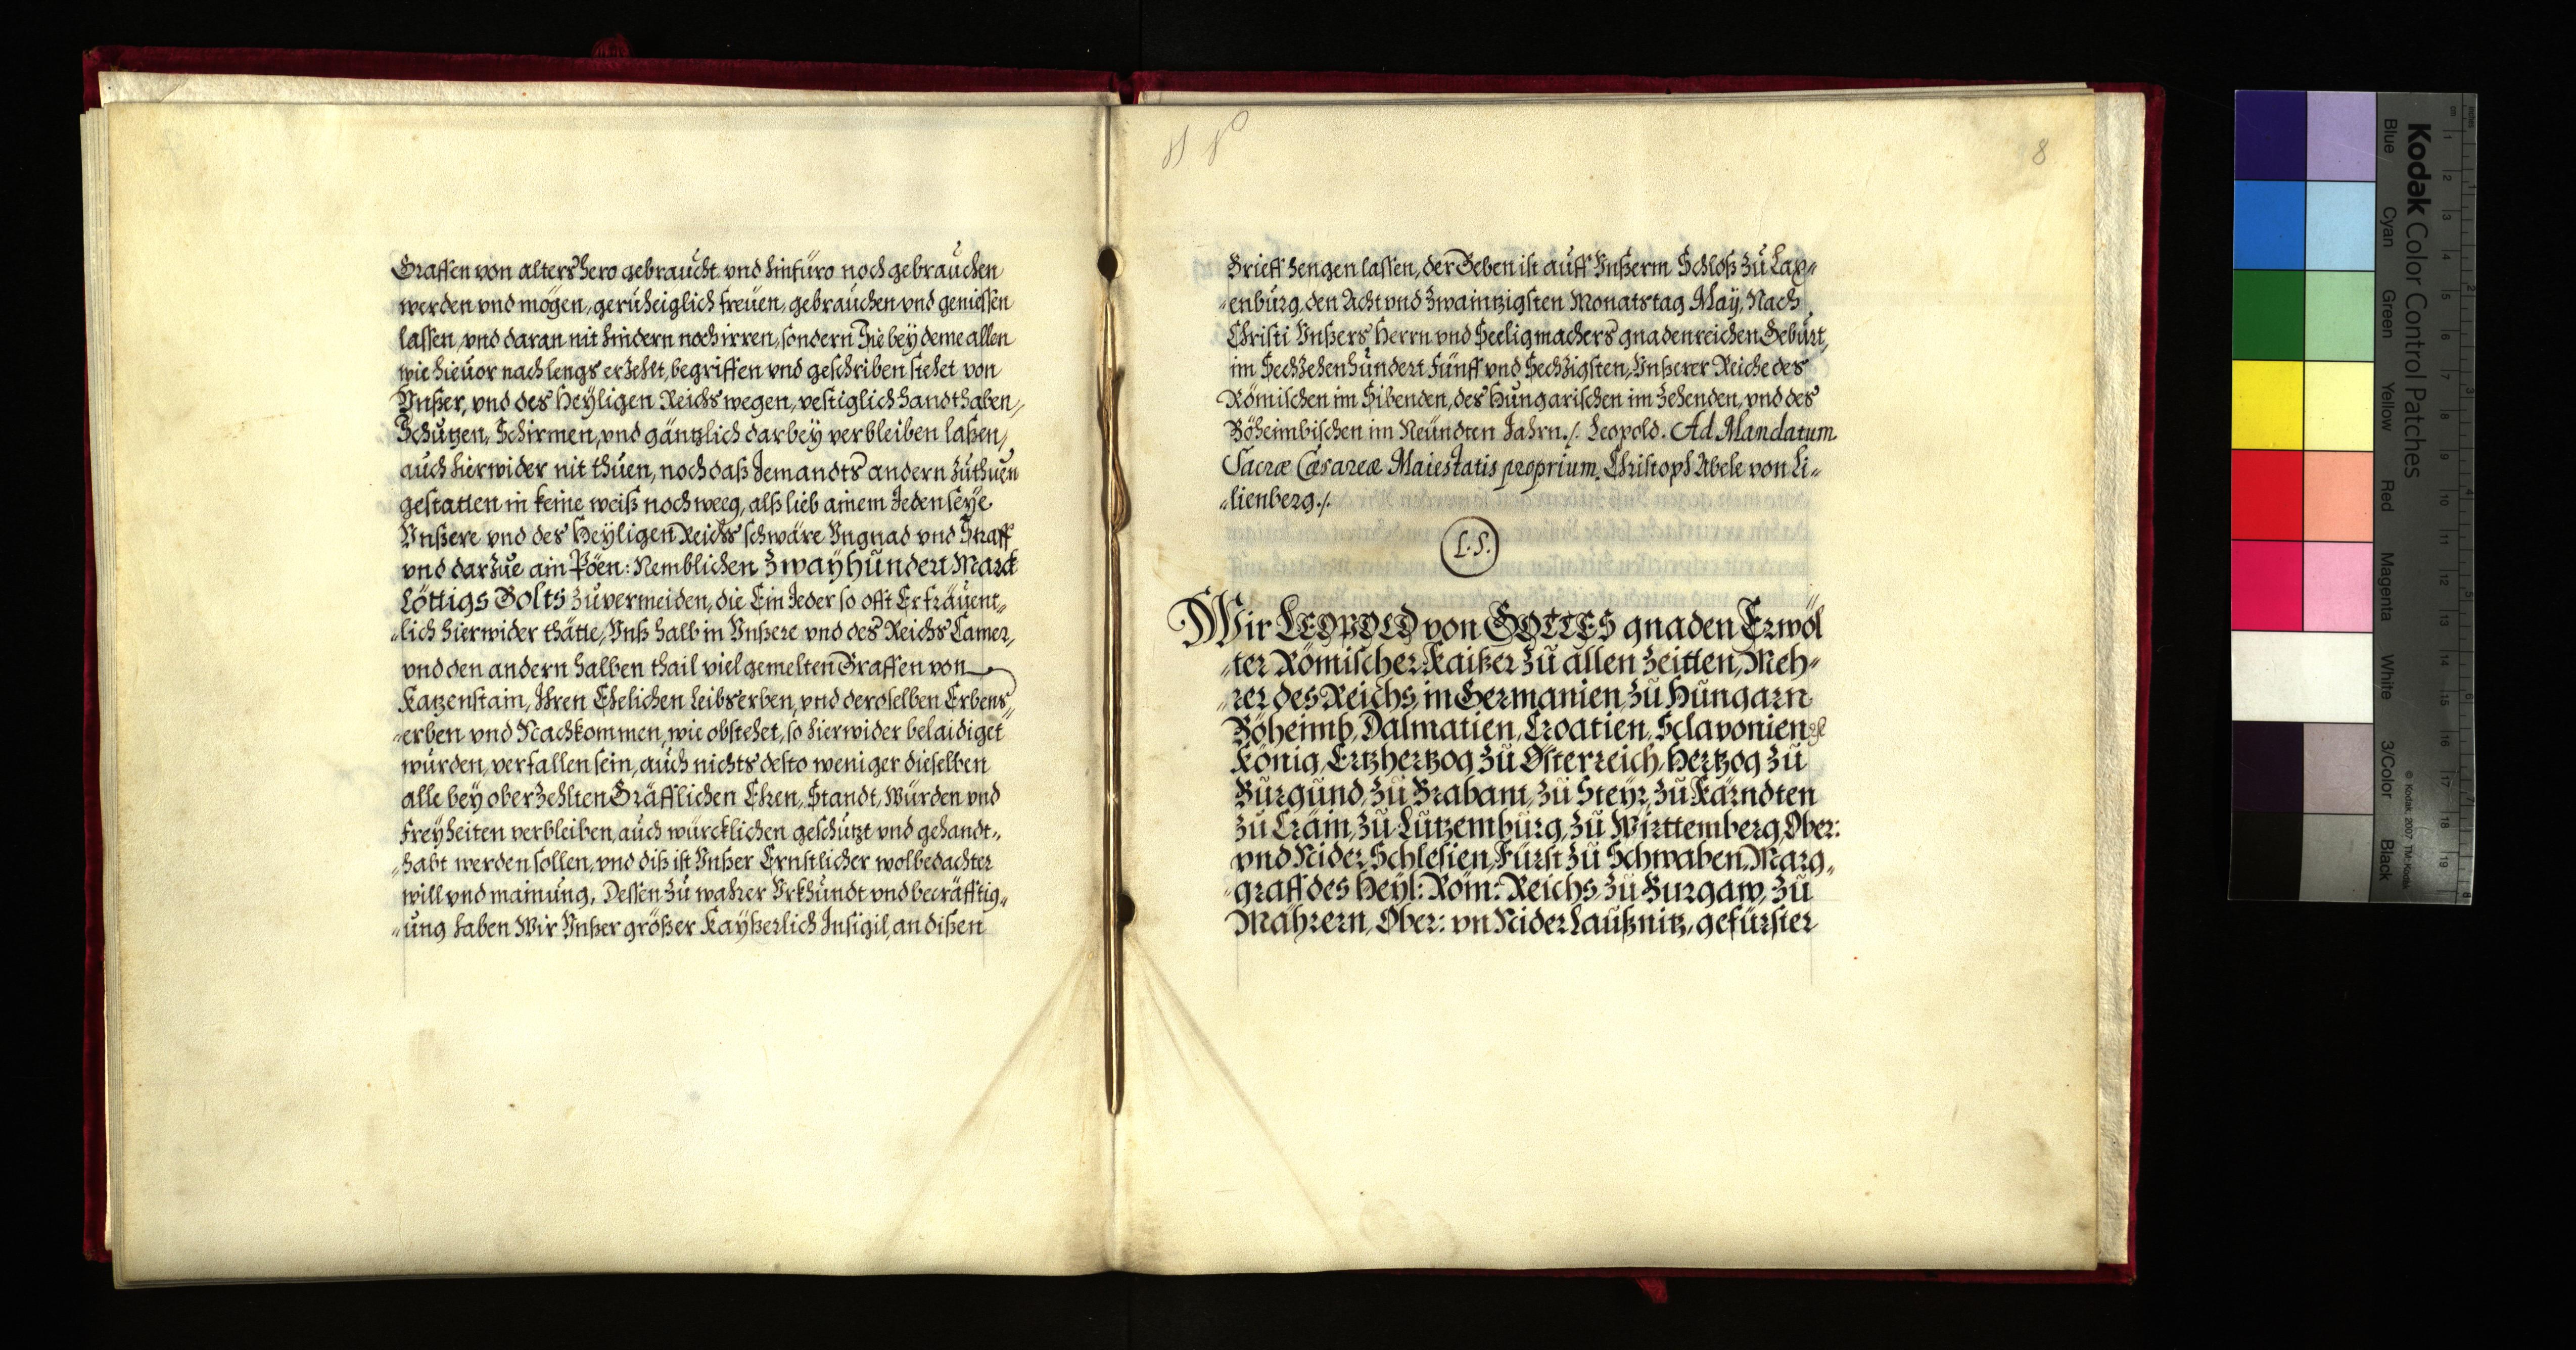 Graffen von alters hero gebraucht vnd hinfüro noch gebrauchen
werden vnd mögen, gerüheiglich freüen, gebrauchen vnd geniessen
lassen, vnd daran nit hindern noch irren, sondern Sie bey deme allen
wie hieuor nach lengs erzehlt, begriffen vnd geschriben stehet von
Vnßer, vnd des Heyligen Reichs wegen, vestiglich handthaben,
Schutzen, Schirmen, vnd gäntzlich darbey verbleiben laßen,
auch hierwider nit thuen, noch daß Jemandts andern zuthuen
gestatten in keine weiß noch weeg, alß lieb ainem Jeden seye
Vnßere vnd des Heyligen Reichs schwäre Vngnad vnd Straff
vnd darzue ain Pöen: Nemblichen Zwayhundert Marck
Löttigs Golts zuvermeiden, die Ein Jeder so offt Er fräuent„
„lich hierwider thätte, Vnß halb in Vnßere vnd des Reichs Camer,
vnd den andern halben thail vielgemelten Graffen von
Katzenstain, Ihren Ehelichen Leibserben, vnd deroselben Erbens„
„erben vnd Nachkommen, wie obstehet, so hierwider belaidiget
wurden, verfallen sein, auch nichts desto weniger dieselben
alle bey oberzehlten Gräfflichen Ehren, Standt, Würden vnd
Freyheiten verbleiben, auch würcklichen geschützt vnd gehandt„
„habt werden sollen, vnd diß ist Vnßer Ernstlicher wolbedachter
will vnd mainung, Dessen zu wahrer Vrkhundt vnd becräfftig„
„ung haben Wir Vnßer größer Kayßerlich Insigil, an dißen
8
Brieff hengen lassen, der Geben ist auff Vnßerm Schloß zu Lax„
„enburg, den Acht vnd zwaintzigsten Monatstag May, Nach
Christi Vnßers Herrn vnd Seeligmachers gnadenreichen Geburt,
im Sechzehenhundert Fünff vnd Sechzigsten, Vnßerer Reiche des
Römischen im Sibenden, des Hungarischen im Zehenden, vnd des
Böheimbischen im Neündten Jahrn./. Leopold. Ad Mandatum
Sacræ Cæsareæ Maiestatis proprium. Christoph Abele von Li„
„lienberg./.
L.S.
Wir LEOPOLD von GOTTES gnaden Erwöl
„ter Römischer Kaißer zu allen Zeitten, Meh„
„rer des Reichs, in Germanien, zu Hungarn
Böheimb, Dalmatien, Croatien, Sclavonien
König, Ertzhertzog zu Österreich, Hertzog zu
Burgund, zu Brabant, zu Steyr, zu Kärndten
zu Crain, zu Lutzemburg, zu Wirttemberg, Ober:
vnd Nider Schlesien, Fürst zu Schwaben, Marg„
„graff des Heyl: Röm: Reichs, zu Burgaw, zu
Mährern, Ober: vn Nider Laußnitz, gefürster
Kodak Color Control Patches
Blue Cyan Green Yellow Red Magenta White 3/Color Black
© Kodak 2007 TM: Kodak